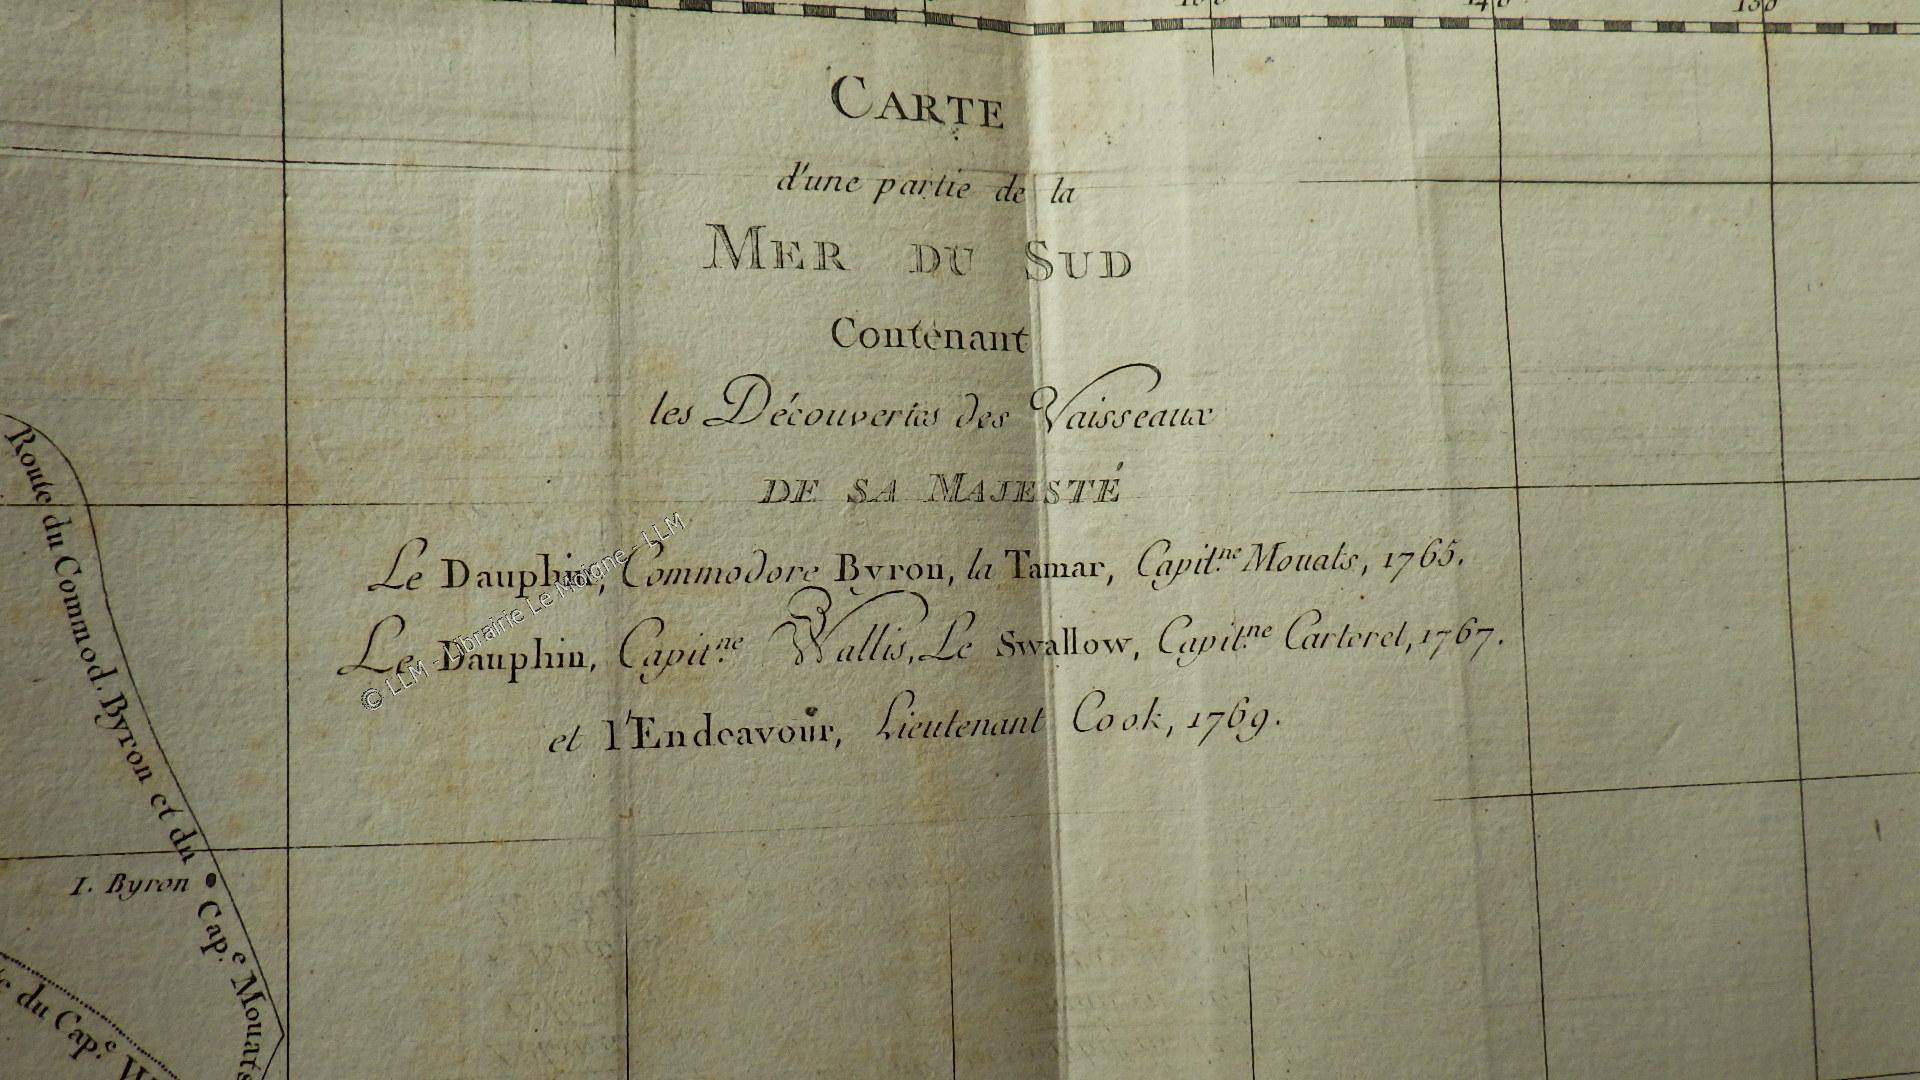 160
140
130
CARTE
d'une partie de la
MER DU SUD
Contenant
les Découvertes des Vaisseaux
DE SA MAJESTÉ
Le Dauphin, Commodore Byron, la Tamar, Capit.ne Mouats, 1765.
Le Dauphin, Capit.ne Wallis, Le Swallow, Capit.ne Carteret, 1767.
et l'Endeavour, Lieutenant Cook, 1769.
Route du Commod. Byron et du Cap.e Mouats
I. Byron
du Cap.e
© LLM - Librairie Le Moigne - LLM